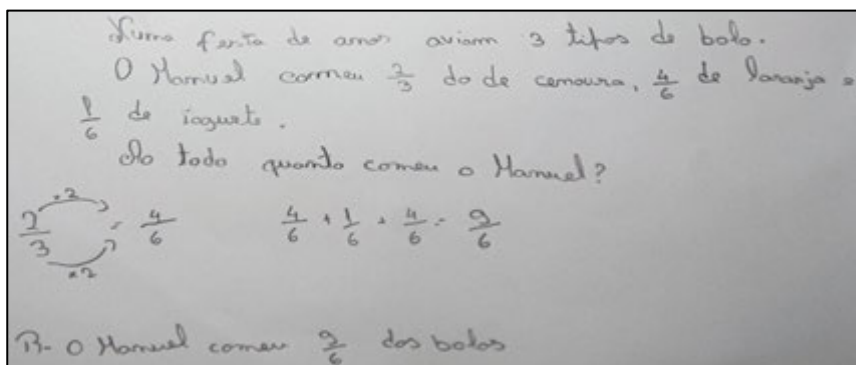 Numa festa de anos aviam 3 tipos de bolo.
O Manuel comeu 2/3 do de cenoura, 4/6 de laranja e
1/6 de iogurte.
Ao todo quanto comeu o Manuel?
×2
2/3 = 4/6 4/6 + 1/6 + 4/6 = 9/6
×2
R- O Manuel comeu 9/6 dos bolos